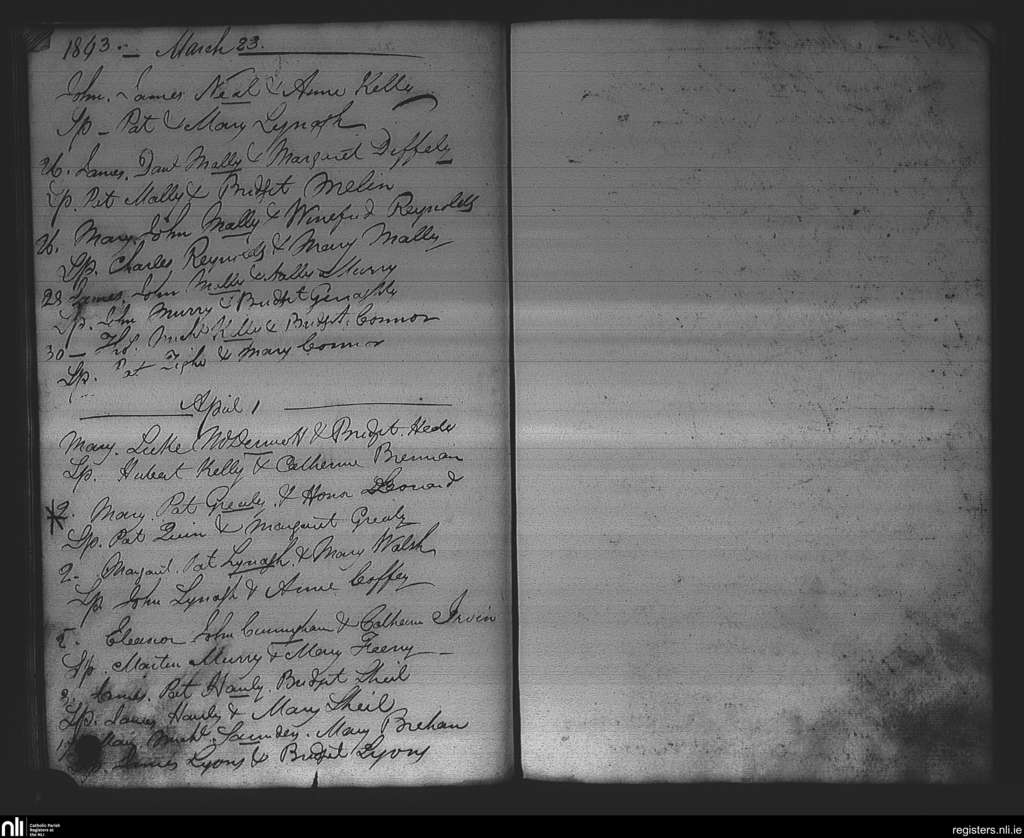 1843. — March 23.
John. James Neal & Anne Kelly
Sp — Pat & Mary Lynagh
26. James. Danl Mally & Margaret Diffely
Sp. Pat Mally & Bridget Melin
26. Mary. John Mally & Winefred Reynolds
Sp. Charles Reynolds & Mary Mally
28 James. John Mally & Murry
Sp. John Murry & Bridget Geraghty
30 — Thos. Michl Kelly & Bridget. Connor
Sp. Pat Tighe & Mary Connor
April 1
Mary. Luke McDermott & Bridget. Hedi
Sp. Hubert Kelly & Catherine Brennan
2. Mary. Pat Grealy. & Honor Leonard
Sp. Pat Quin & Margaret Grealy
2. Margaret. Pat Lynagh. & Mary Walsh
Sp John Lynagh & Anne Coffey
5. Eleanor John Cunningham & Catherine Irvin
Sp. Martin Murry & Mary Feeny
James. Pat Hanly. Bridget Sheil
Sp. James Hanly & Mary Sheil
Mary Michl. Saunders. Mary Brehan
James Lyons & Bridget Lyons
nli
Catholic Parish
Registers at
the NLI
registers.nli.ie